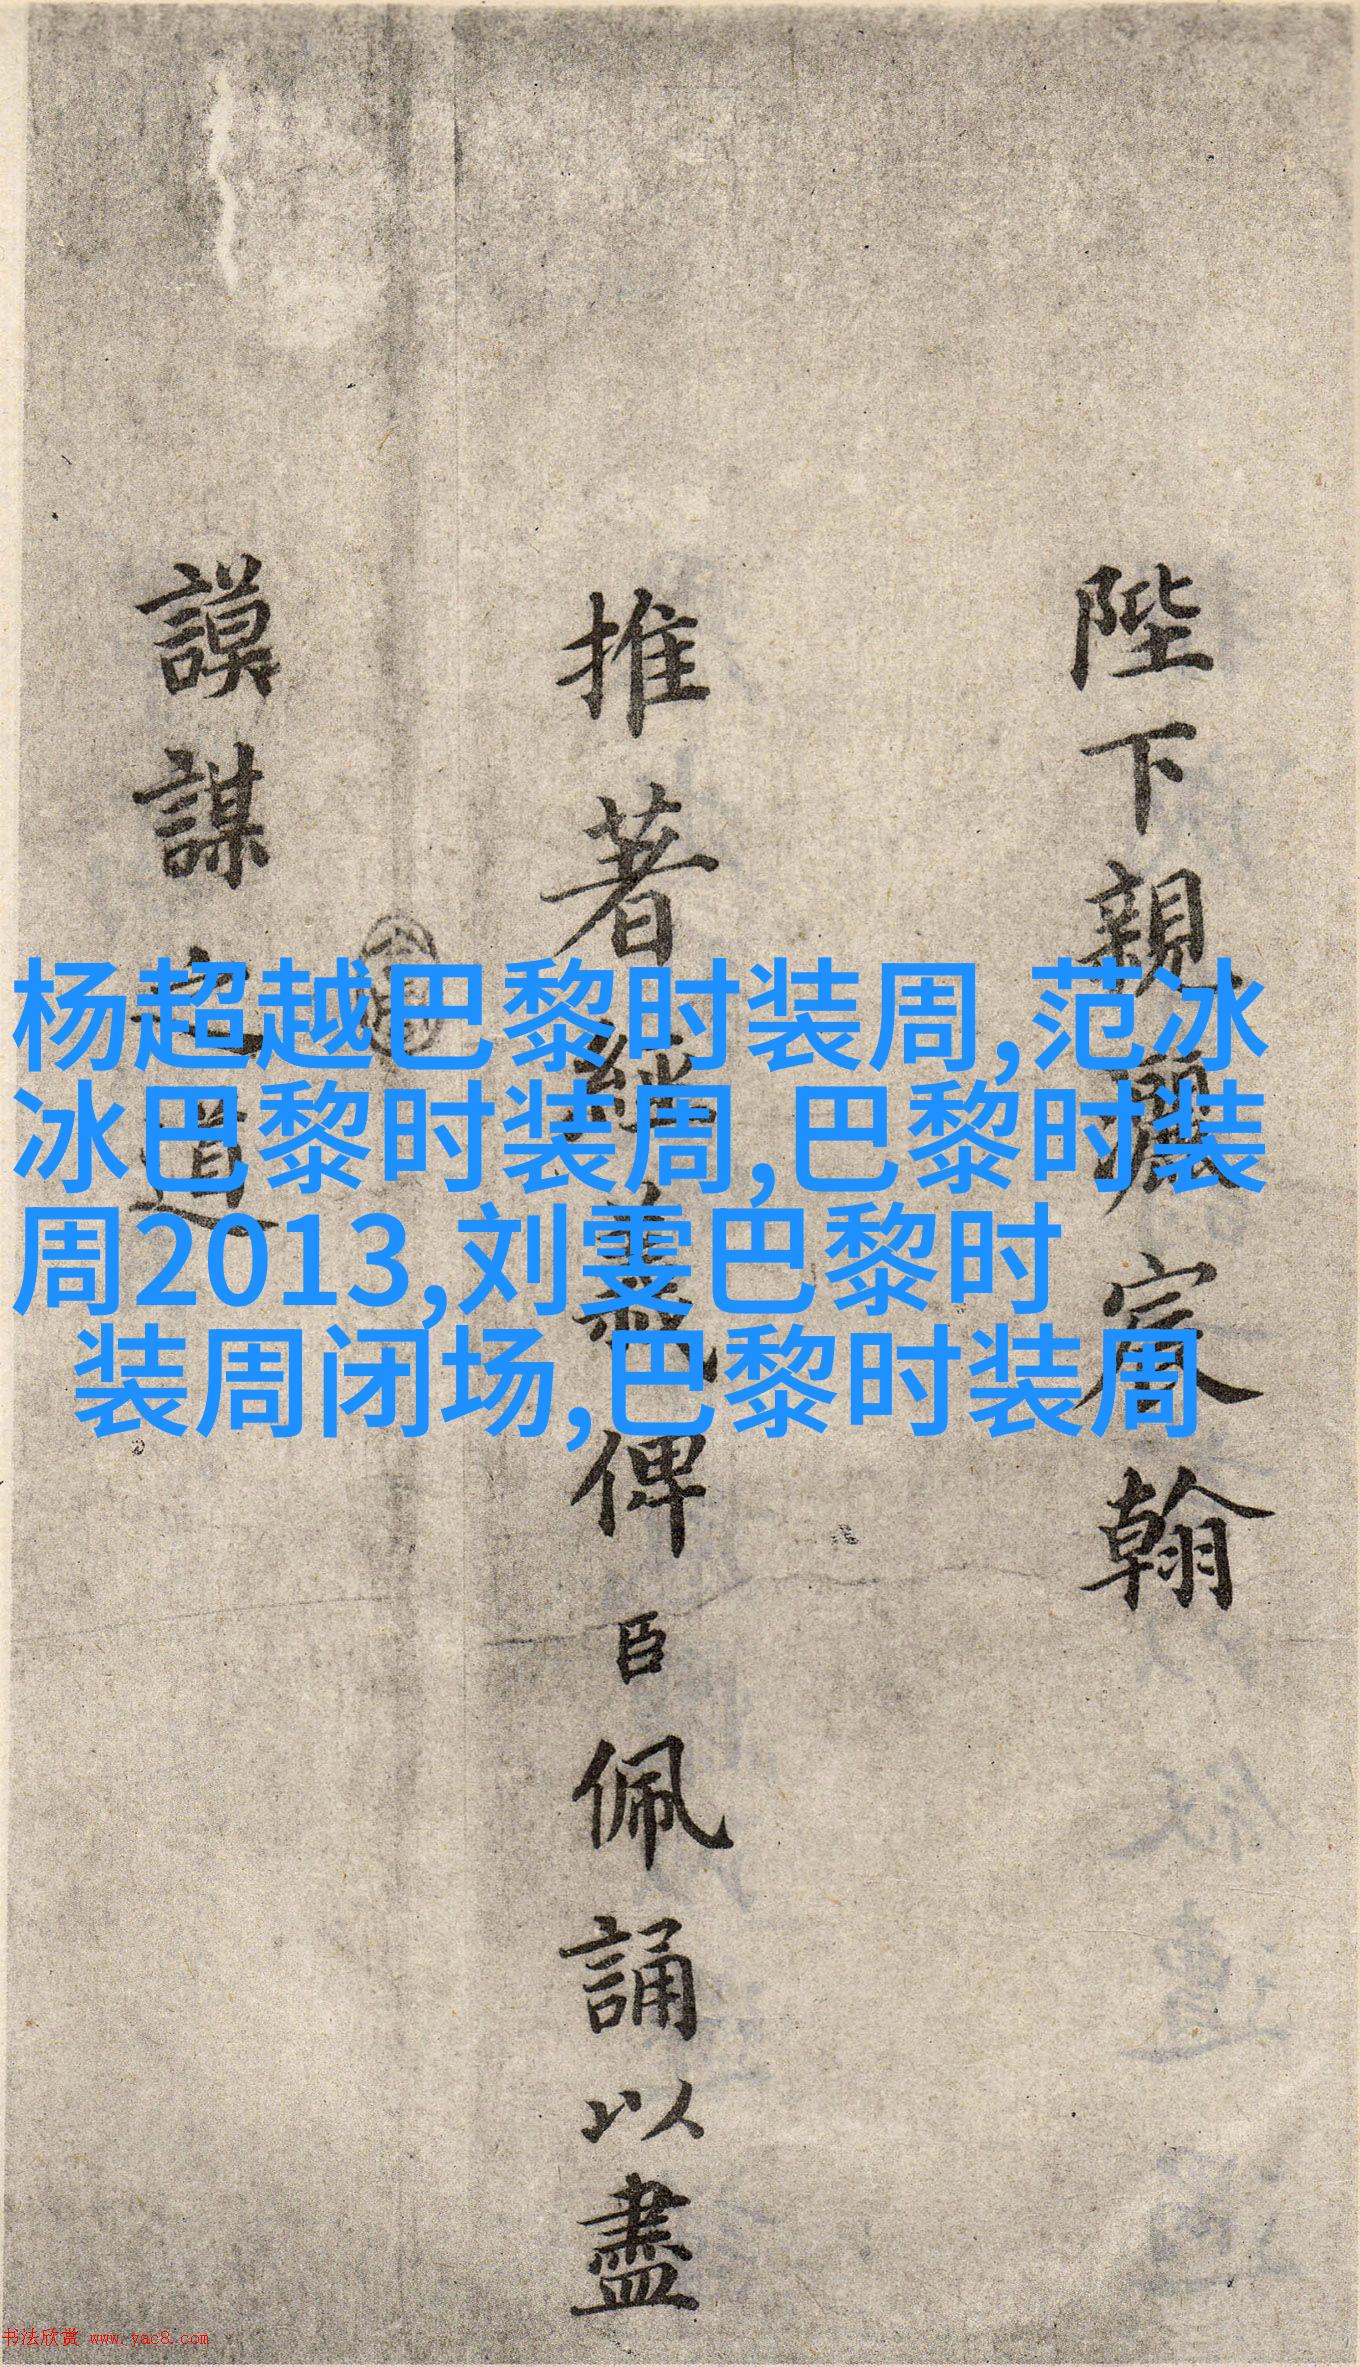 陛下親灑宸翰
推著經義俾臣佩誦以盡
謨謀之道
杨超越巴黎时装周,范冰
冰巴黎时装周,巴黎时装
周2013,刘雯巴黎时
装周闭场,巴黎时装周
书法欣赏 www.yac8.com